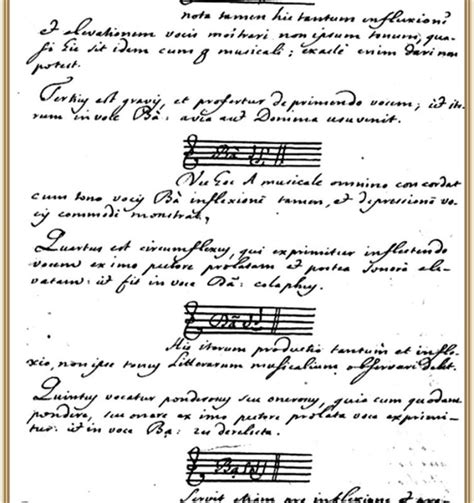 nota tamen his tantum influxionē
et elevationem vocis mostrari non ipsum tonum, qua-
si hic sit idem cum g musicali; exacte enim dari non
potest.
Tertius est gravis, et profertur deprimendo vocem; ut ite-
rum in voce Bà: avia aut Domina usuvenit.
Bà
Nec hoc A musicale omnino concordat
cum tono vocis Bà inflexionē tamen, et depressionē vo-
cis commodi monstrat,
Quartus est circumflexus, qui exprimitur inflectendo
vocem ex imo pectore prolatam et postea sonorà ele-
vatam: ut fit in voce Bả: colaphus.
Bả
His iterum productio tantum et infle-
xio, non ipse tonus Litterarum musicalium observari debet.
Quintus vocatur ponderosus seu onerosus, quia cum quodam
pondere, seu onere ex imo pectore prolata voce exprimi-
tur: ut in voce Bạ: res derelicta.
Bạ
Servit etiam